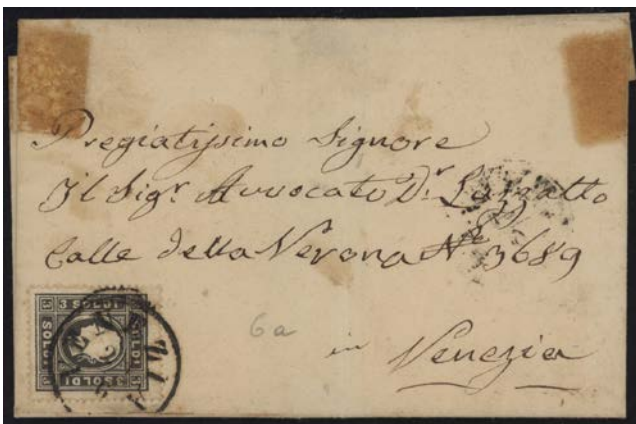 Pregiatissimo Signore
Il Sigr. Avvocato Dr. Luzzatto
Calle della Verona No 3689
6a
in Venezia
3 SOLDI
VENEZIA